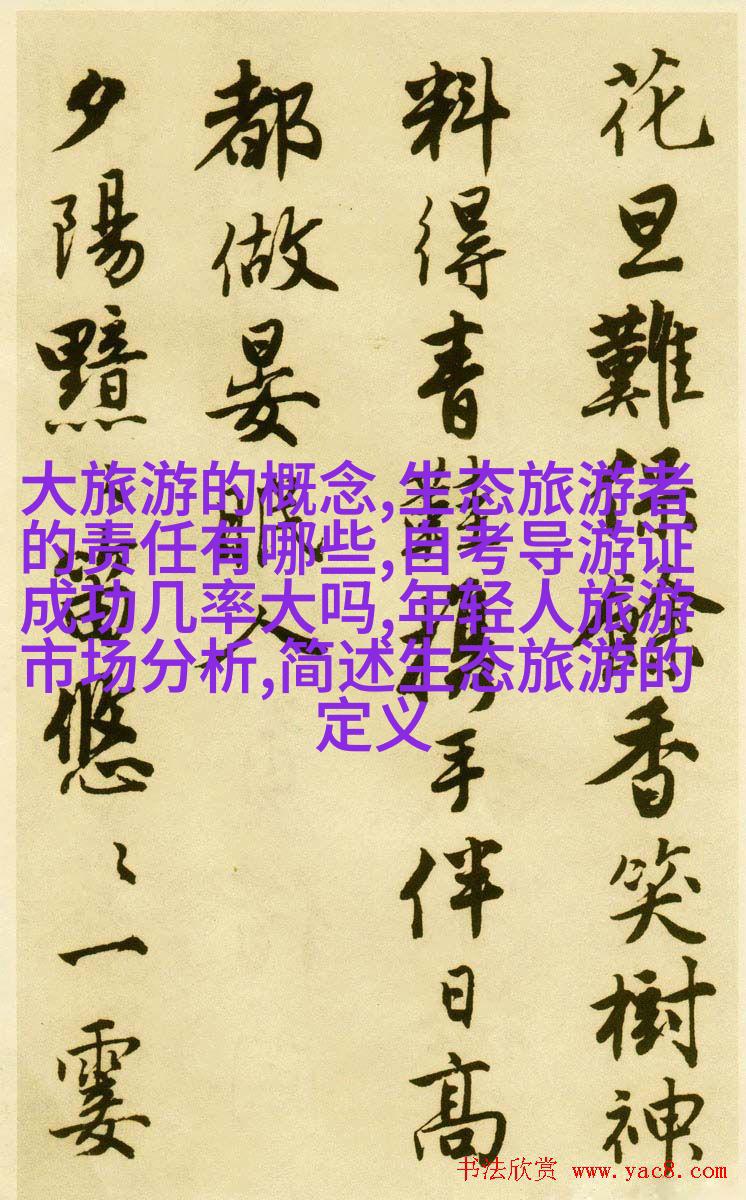 花旦難餘香笑樹神
料得青鞋携手伴日高
都做晏眠人
夕陽黯笛悠〻一霎
大旅游的概念,生态旅游者
的责任有哪些,自考导游证
成功几率大吗,年轻人旅游
市场分析,简述生态旅游的
定义
书法欣赏 www.yac8.com